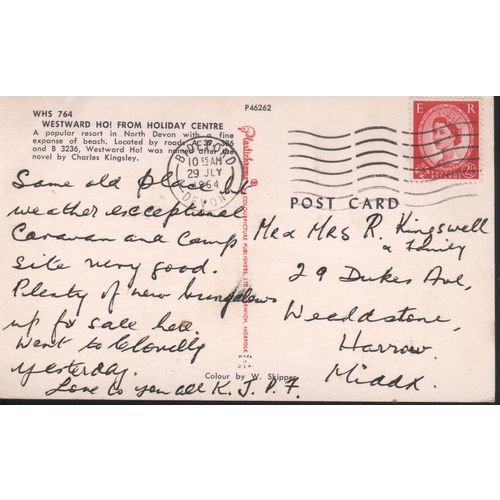 WHS 764
WESTWARD HO! FROM HOLIDAY CENTRE
A popular resort in North Devon with a fine
expanse of beach. Located by roads A 39, 386
and B 3236, Westward Ho! was named after the
novel by Charles Kingsley.
P46262
BIDEFORD
10 15 AM
29 JLY
1964
DEVON
E R
POST CARD
Same old place but
weather esceeptional
Caravan and Camp
site very good.
Plenty of new bungalows
up for sale here
Went to Clovelly
yesterday.
Love to you all K. J. P. F.
Mr & Mrs R. Kingswell
& Family
29 Dukes Ave,
Weeldstone,
Harrow.
Middx.
Plastichrome
COLOURPICTURE PUBLISHERS, LTD. NORFOLK
Colour by W. Skipper